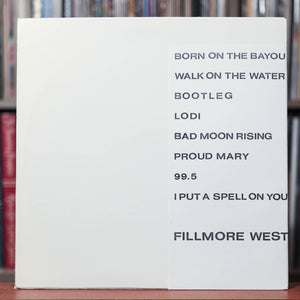 BORN ON THE BAYOU
WALK ON THE WATER
BOOTLEG
LODI
BAD MOON RISING
PROUD MARY
99.5
I PUT A SPELL ON YOU
FILLMORE WEST